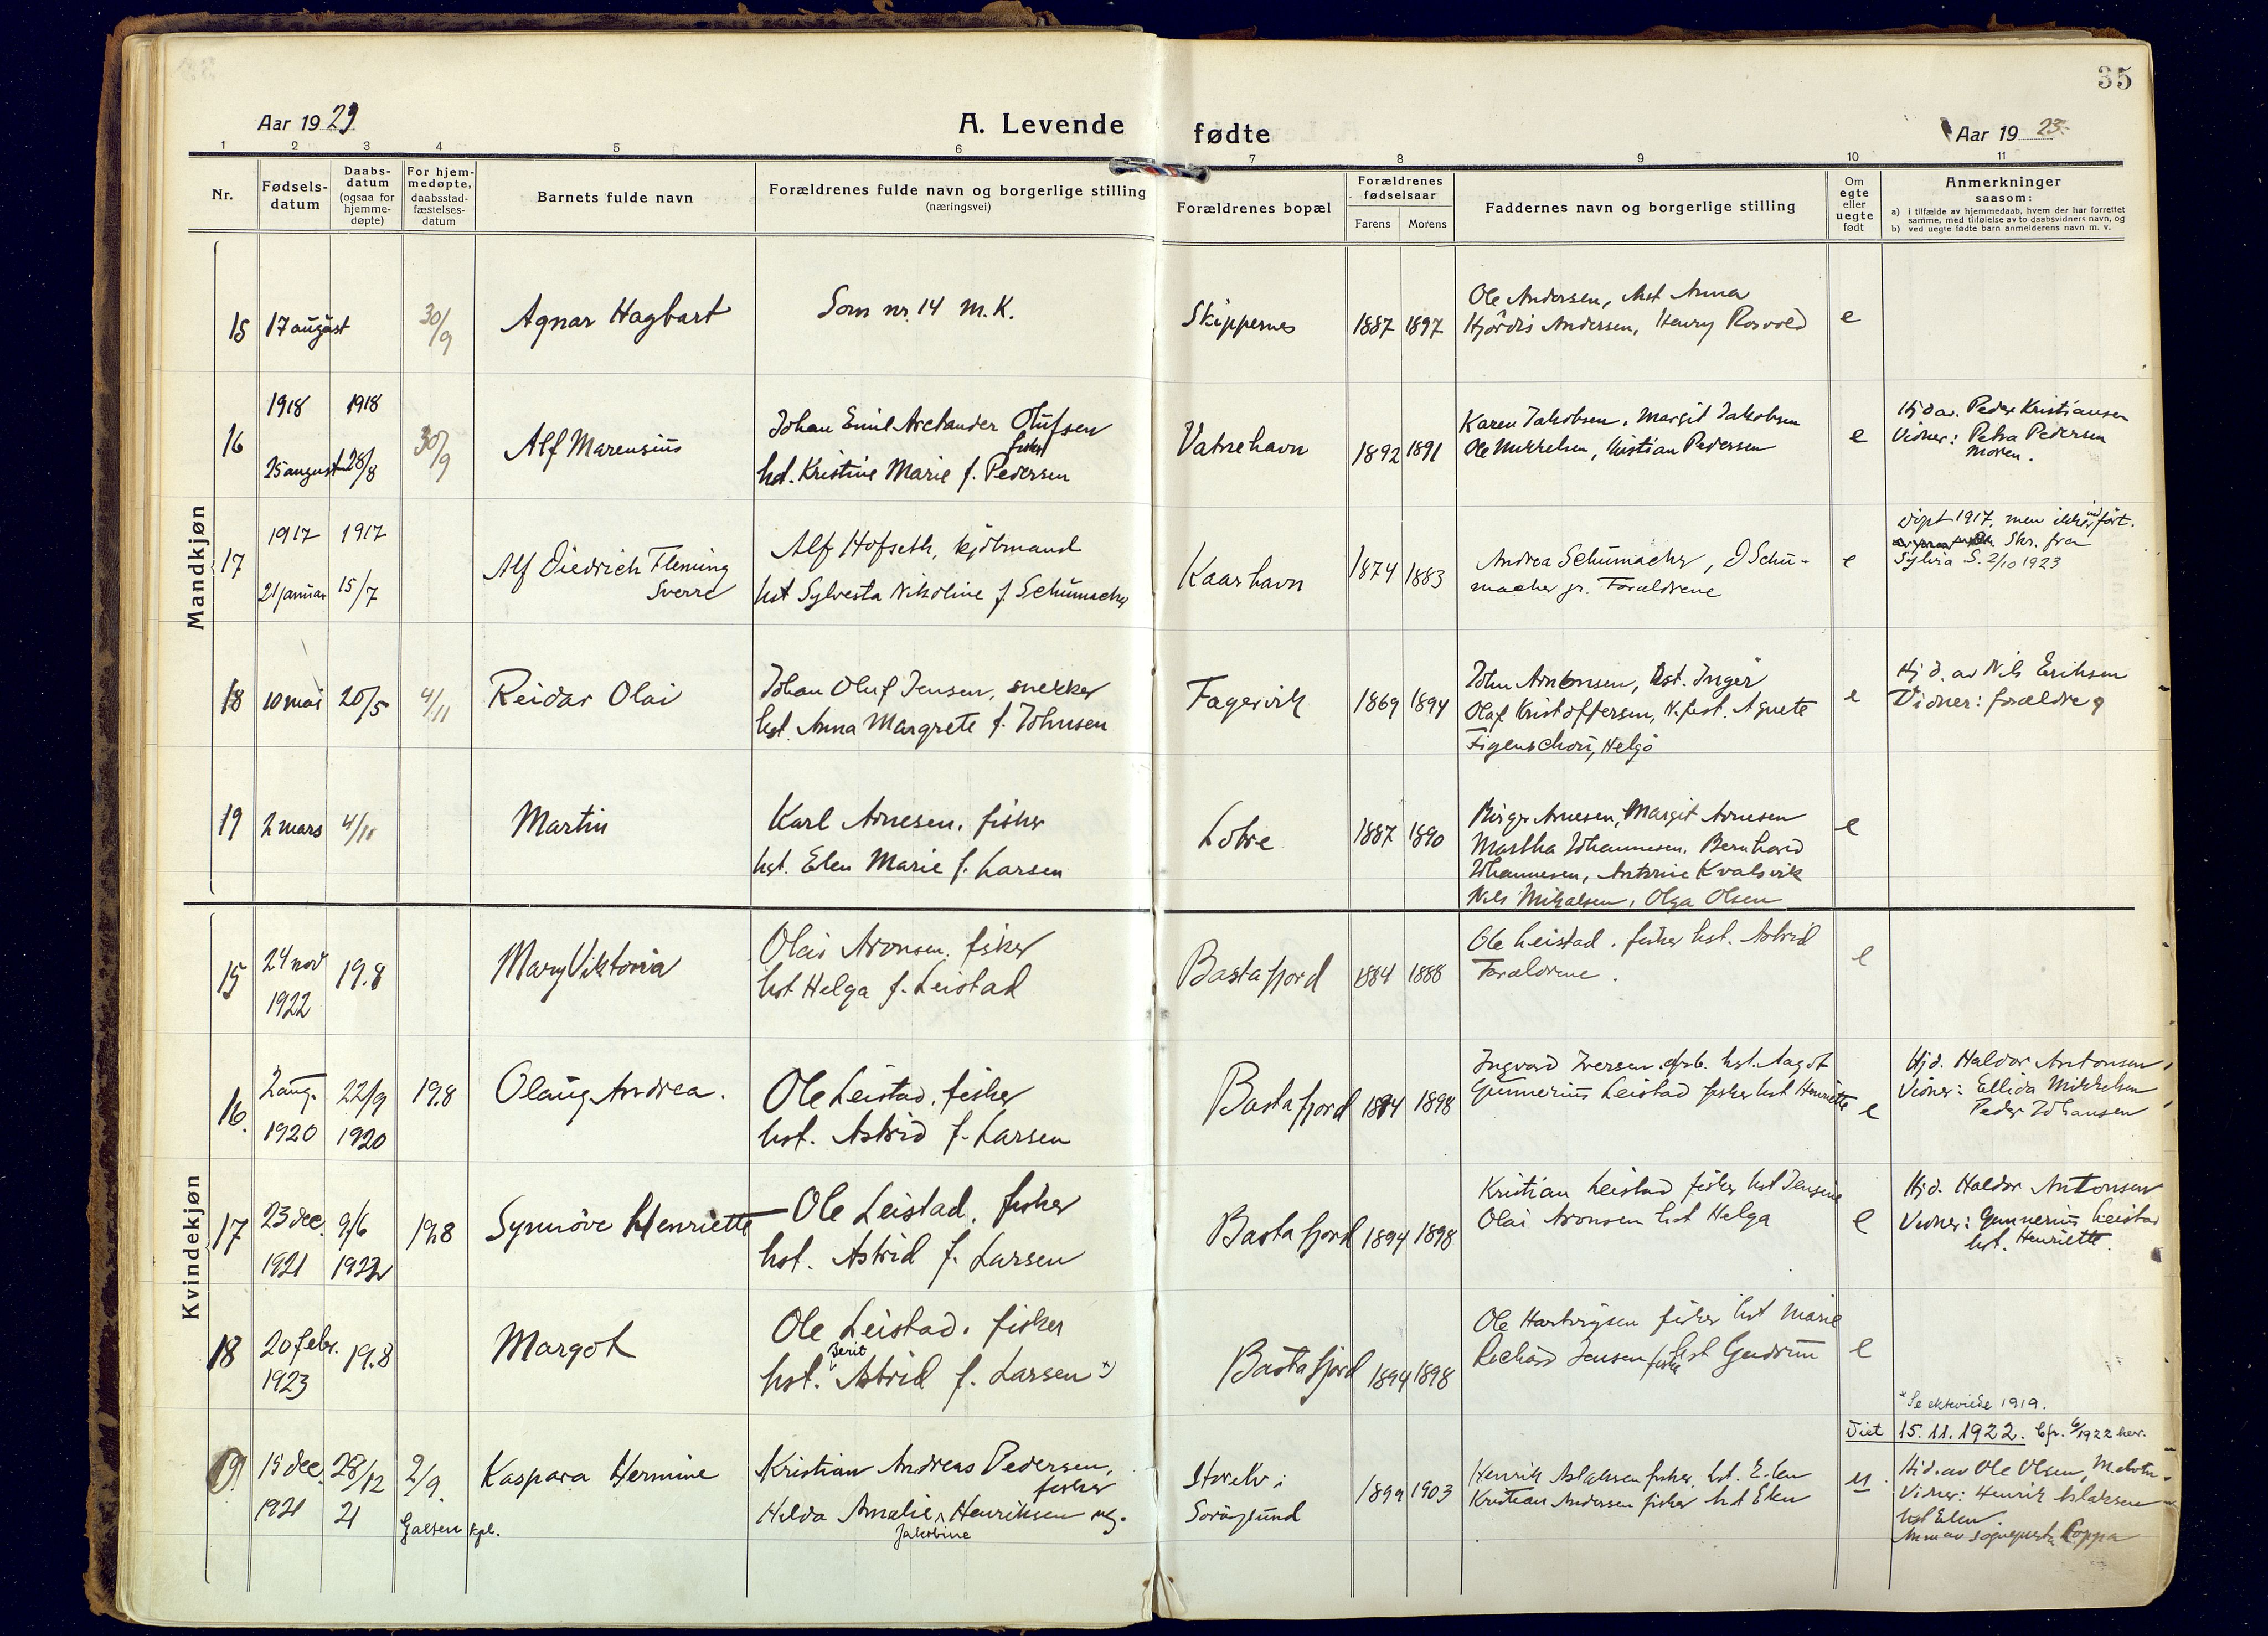 35
Aar 1923
A. Levende fødte
Aar 1923.
1 2 3 4 5 6 7 8 9 10 11
Nr.
Fødsels-
datum
Daabs-
datum
(ogsaa for
hjemme-
døpte)
For hjem-
medøpte,
daabsstad-
fæstelses-
datum
Barnets fulde navn
Forældrenes fulde navn og borgerlige stilling
(næringsvei)
Forældrenes bopæl
Forældrenes
fødselsaar
Farens Morens
Faddernes navn og borgerlige stilling
Om
egte
eller
uegte
født
Anmerkninger
saasom:
a) i tilfælde av hjemmedaab, hvem der har forrettet
samme, med tilføielse av to daabsvidners navn, og
b) ved uegte fødte barn anmelderens navn m. v.
Mandkjøn
15 17 august 30/9 Agnar Hagbart
Som nr. 14 M.K.
Skippernes 1887 1897
Ole Andersen, hst Anna
Hjördis Andersen, Henry Rosvold
e
16
1918 1918
25 august 28/8 30/9
Alf Marensius
Johan Emil Arelander Olufsen
fisker
hst. Kristine Marie f. Pedersen
Vatnehavn 1892 1891
Karen Jakobsen, Margit Jakobsen
Ole Mikkelsen, Kristian Pedersen
e
Hjd av. Peder Kristiansen
Vidner: Petra Pedersen
Moren.
17
1917 1917
21 januar 15/7
Alf Diedrich Fleming
Sverre
Alf Hofseth, kjöbmand
hst Sylvesta Nikoline f. Schumacher
Kaarhavn 1874 1883
Andrea Schumacher, D Schu-
macher jr. Forældrene
e
Döpt 1917, men ikke indfört.
Skr. fra
Sylvia S. 2/10 1923
18 10 mai 20/5 4/11 Reidar Olai
Johan Oluf Jensen, snekker
hst. Anna Margrete f. Johnsen
Fagervik 1869 1894
John Arnonsen, hst. Inger
Olaf Kristoffersen, Agnete
Figenschou, Helgö
e
Hj d. av Nils Eriksen
Vidner: forældre
19 2 mars 4/11 Martin
Karl Arnesen, fisker
hst. Elen Marie f. Larsen
Lobre 1887 1890
Birger Arnesen, Margit Arnesen
Martha Johannesen, Bernhard
Johannesen, Antonie Kvalsvik
Nils Mikalsen, Olga Olsen
e
Kvindekjøn
15 24 nov
1922
19.8 Mary Viktoria
Olai Aronsen, fisker
hst Helga f. Leistad
Bastafjord 1884 1888
Ole Leistad, fisker hst. Astrid
Forældrene.
e
16.
2 aug. 22/9 19.8
1920 1920
Olaug Andrea.
Ole Leistad, fisker
hst. Astrid f. Larsen
Bastafjord 1894 1898
Ingvard Iversen, hst. Aagot
Gunnerius Leistad fisker hst Henriette
e
Hjd. Haldor Antonsen,
Vidner: Ellida Mikkelsen
Peder Johansen
17
23 dec. 9/6 19.8
1921 1922
Synnöve Henriette
Ole Leistad, fisker
hst. Astrid f. Larsen
Bastafjord 1894 1898
Kristian Leistad fisker hst Jensine
Olai Aronsen hst Helga
e
Hjd. Haldor Antonsen
Vidner: Gunnerius Leistad
hst. Henriette.
18
20 febr. 19.8
1923
Margot
Ole Leistad, fisker
Berit
hst. Astrid f. Larsen *)
Bastafjord 1894 1898
Ole Hartvigsen fisker hst Marie
Richard Jensen fisker hst Gudrun
e
* Se ekteviede 1919.
Viet 15.11.1922. Cfr. 6/1922 her.
19.
15 dec. 28/12 2/9.
1921 21
Galten kpl.
Kaspara Hermine
Kristian Andreas Pedersen,
fisker
Helda Amalie Henriksen ug.
Jakobine
Storelv i
Sörøysund
1899 1903
Henrik Aslaksen fisker, hst. Elen
Kristian Andersen fisker hst Elen
u.
Hjd. av Ole Olsen,
Vidner: Henrik Aslaksen
hst Elen
Anm av sogneprest Koppa